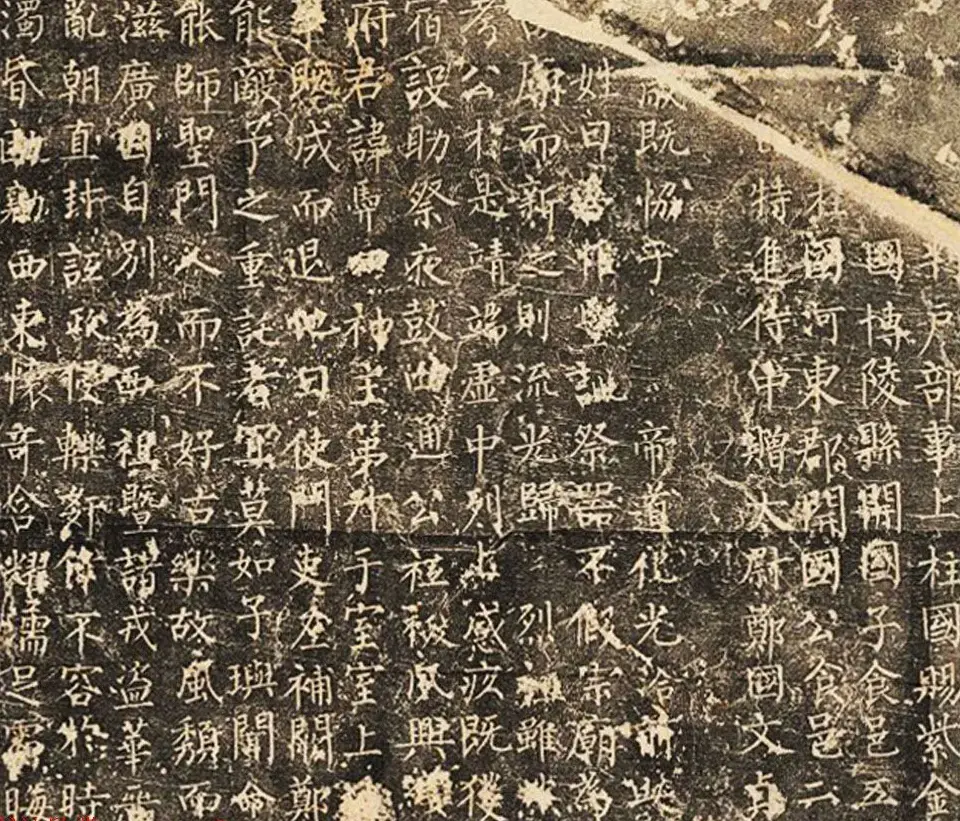 戶部事上柱國賜紫金
國博陵縣開國子食邑五
柱國河東郡開國公食邑二
特進侍中贈太尉鄭國文貞
既協乎帝道化光洽
姓曰惟祭器不假宗廟為
廟而新之則流光歸烈祖雖然
考公相是靖端虛中列感疚既獲
宿設助祭夜鼓四通公祗祓夙興
府君諱四神主第升于室室上
事既成而退他日使門吏左補闕鄭
能敵予之重託者宜莫如子璵闡命
能師聖門人而不好古樂故風頹而
滋廣因自別為西祖暨諸戎盜華
亂朝直封詆侵轢邪不容於時
濁昏西東懷奇含耀濡足晦